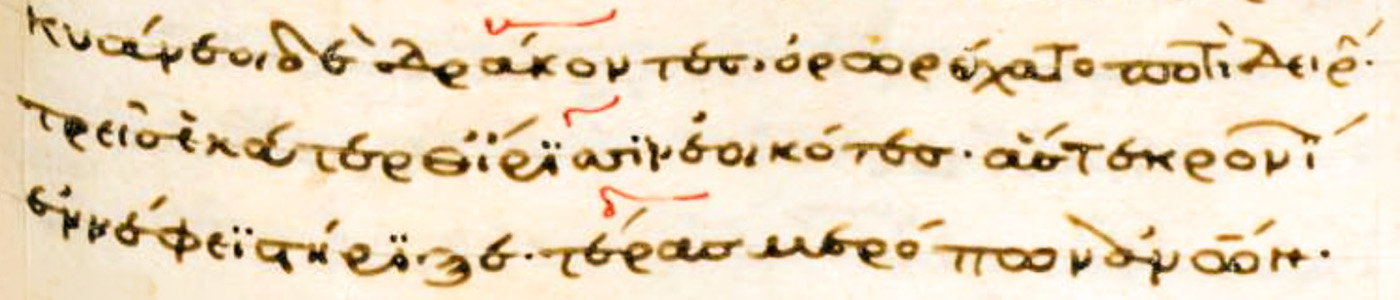 κυάνεοι δὲ δράκοντες· ὀρωρέχατο ποτὶ δειρὴ·
τρεῖς ἑκάτερθΐρϊσϊν ἐοικότες· ἅστε κρονΐ
ἐν νέφεϊ στήρϊξε· τέρας μερόπων ἀν̅ω̅ν·